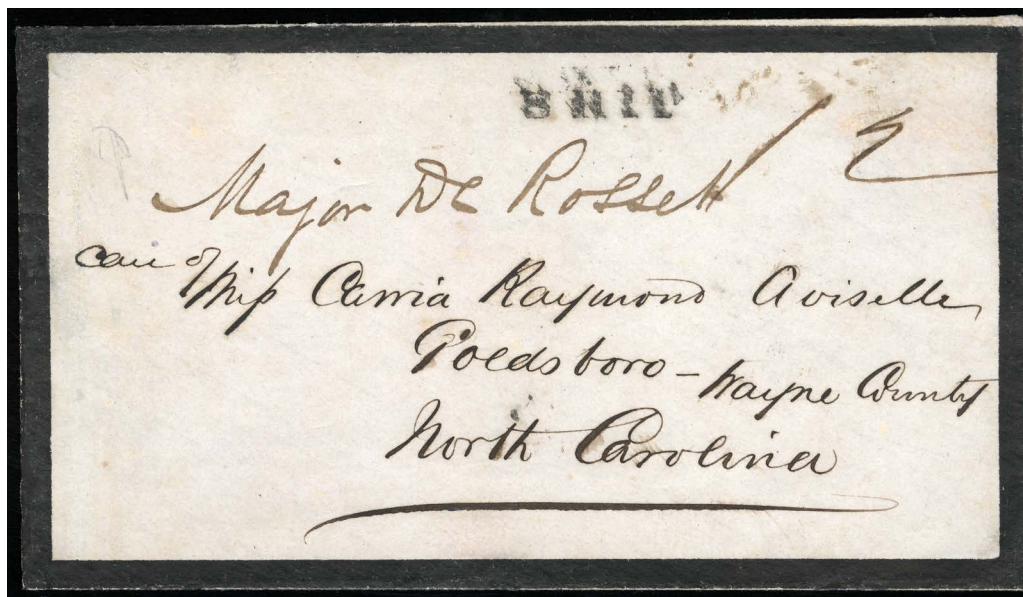 SHIP
Major De Rossett
care of
Miss Carria Raymond Aviselle
Goldsboro - Wayne County
North Carolina